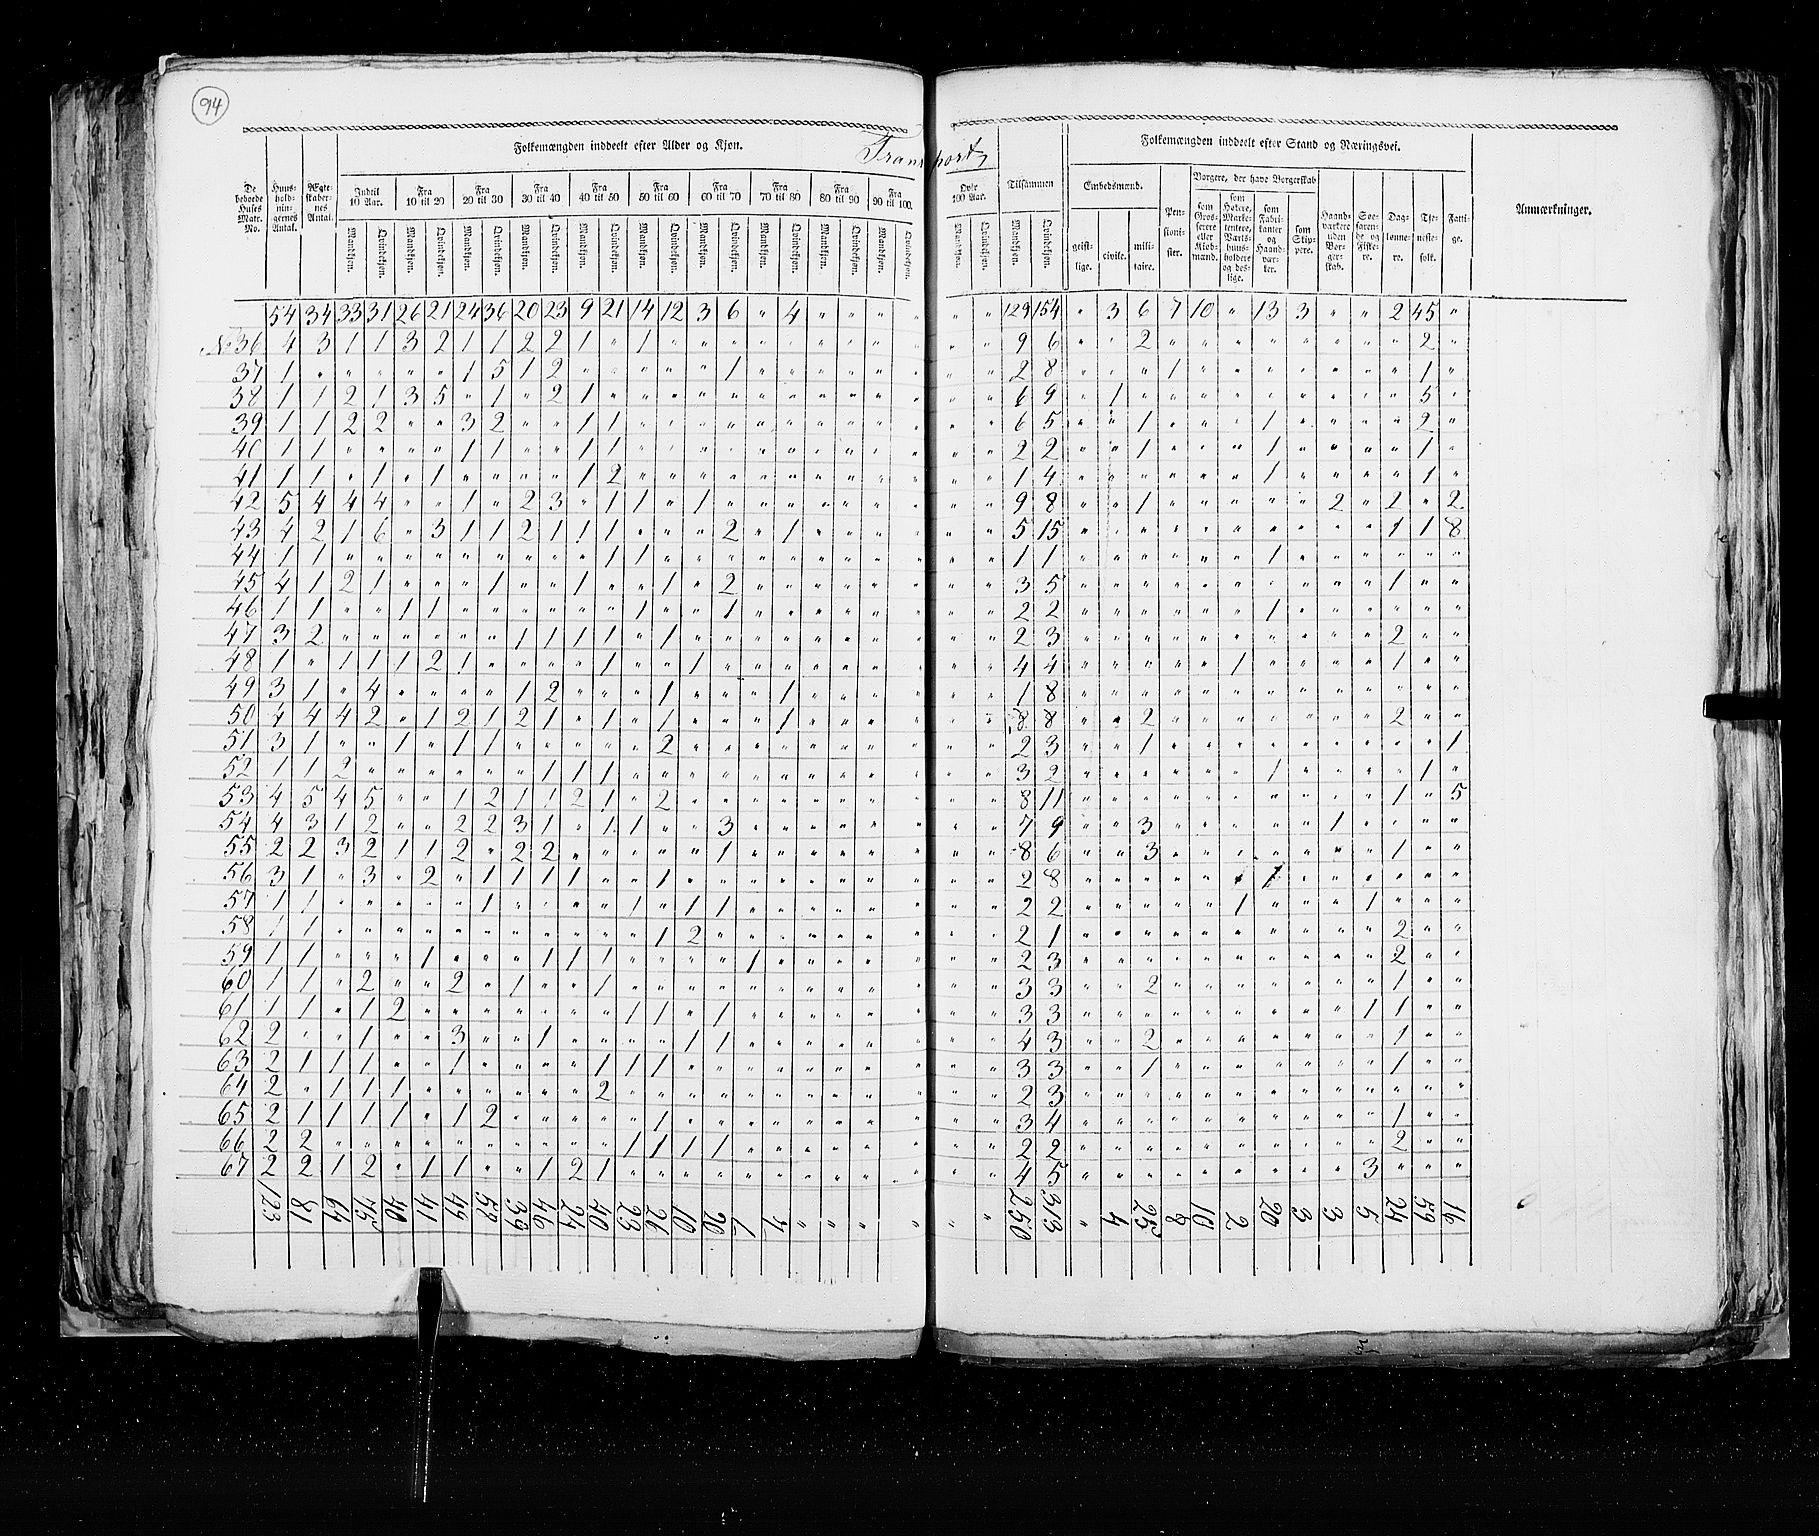 94
Transport,
Folkemængden inddeelt efter Alder og Kjøn.
Folkemængden inddeelt efter Stand og Næringsvei.
De beboede Huses Matr. No.
Huus-hold-nin-gernes Antal.
Ægte-skaber-nes Antal.
Indtil 10 Aar.
Fra 10 til 20
Fra 20 til 30
Fra 30 til 40
Fra 40 til 50
Fra 50 til 60
Fra 60 til 70
Fra 70 til 80
Fra 80 til 90
Fra 90 til 100.
Over 100 Aar.
Tilsammen
Mandkjøn. Qvindekjøn.
Embedsmænd.
geist-lige. civile. mili-taire.
Pen-sioni-ster.
Borgere, der have Borgerskab
som Gros-serere eller Kiøb-mænd.
som Høkere, Marke-tentere, Værts-huus-holdere og des-lige.
som Fabri-kanter og Haand-vær-ker.
som Skip-pere.
Haand-værkere uden Bor-ger-skab.
Søe-farende og Fiske-re.
Dag-lønne-re.
Tje-neste-folk.
Fatti-ge.
Anmærkninger.
54 34 33 31 26 21 24 36 20 23 9 21 14 12 3 6 " 4 " " " " " " 129 154 " 3 6 7 10 " 13 3 " " 2 45 "
No 36 4 3 1 1 3 2 1 1 2 2 1 " 1 " " " " " " " " " " " 9 6 " " 2 " " " " " " " " 2 "
37 1 " " " " " 1 5 1 2 " " " " " 1 " " " " " " " " 2 8 " " " 1 " " " " " " " 1 "
38 1 1 2 1 3 5 " 1 " 2 1 " " " " " " " " " " " " " 6 9 " 1 " " " " " " " " " 5 "
39 1 1 2 2 " " 3 2 " " 1 1 " " " " " " " " " " " " 6 5 " " 1 " " " 1 " " " " 2 "
40 1 1 " " " " 1 1 " " 1 1 " " " " " " " " " " " " 2 2 " " 1 " " " 1 " " " " 1 "
41 1 1 " 1 " 1 " " " " 1 2 " " " " " " " " " " " " 1 4 " " " " " " 1 " " " " 1 "
42 5 4 4 4 " " 1 " 2 3 " 1 1 " 1 " " " " " " " " " 9 8 " " 1 " " " " " 2 " 2 " 2
43 4 2 1 6 " 3 1 1 2 1 1 1 " " " 2 " 1 " " " " " " 5 15 " " " " " " " " " " 1 1 8
44 1 1 " " " " " " " " " 1 1 " " " " " " " " " " " 1 1 " " " " " " 1 " " " " " "
45 4 1 2 1 " " " 1 " " 1 " " 1 " 2 " " " " " " " " 3 5 " " " " " " " " " " 1 " "
46 1 1 " " 1 1 " " " " " " 1 " " 1 " " " " " " " " 2 2 " " " " " " 1 " " " " " "
47 3 2 " " " " " " 1 1 1 1 " 1 " " " " " " " " " " 2 3 " " " " " " " " " " 2 " "
48 1 " 1 1 1 2 1 " " " " 1 " " 1 " " " " " " " " " 4 4 " " " " " 1 " " " " 1 " "
49 3 1 " 4 " " " " 1 2 " " " 1 " " " 1 " " " " " " 1 8 " " " " " " " " " " " " "
50 4 4 4 2 " 1 2 1 2 1 " 1 " 1 " " " 1 " " " " " " 8 8 " " 2 " " " " " " " 2 " "
51 3 1 " " 1 " 1 1 " " " " " 2 " " " " " " " " " " 2 3 " " 1 " " " " " " " " " 1
52 1 1 2 " " " " " " 1 1 1 " " " " " " " " " " " " 3 2 " " " " " " 1 " " " " 1 "
53 4 5 4 5 " " 1 2 1 1 2 1 " 2 " " " " " " " " " " 8 11 " " " " " " " " " " 1 " 5
54 4 3 1 2 " " 2 2 3 1 " 1 1 " " 3 " " " " " " " " 7 9 " " 3 " " " " " 1 " " " "
55 2 2 3 2 1 1 2 " 2 2 " " " " " 1 " " " " " " " " 8 6 " " 3 " " " " " " " 1 " "
56 3 1 " 3 " 2 " 1 1 1 1 " " 1 " " " " " " " " " " 2 8 " " " " " " 1 " " " " " "
57 1 1 " " " " " 1 " " " " 1 " 1 1 " " " " " " " " 2 2 " " " " " 1 " " " 1 " " "
58 1 1 " " " " " " " " " " " 1 2 " " " " " " " " " 2 1 " " " " " " " " " " 2 " "
59 1 1 " " " 1 " " " 1 1 1 " " " " 1 " " " " " " " 2 3 " " " " " " " " " " 2 " "
60 1 1 " 2 " " 2 " 1 " " 1 " " " " " " " " " " " " 3 3 " " 2 " " " " " " " 1 " "
61 1 1 " 1 2 " " " " " " " 1 1 " 1 " " " " " " " " 3 3 " " " " " " " " " 1 1 " "
62 2 " " 1 " " 3 " " 1 " " " " 1 1 " " " " " " " " 4 3 " " 2 " " " " " " " 1 " "
63 2 1 1 1 " " 1 " " " " 1 1 1 " " " " " " " " " " 3 3 " " 1 " " " " " " " 1 " "
64 2 " 1 1 1 " " " " " " 2 " " " " " " " " " " " " 2 3 " " " " " " " " " " " " "
65 2 1 1 1 1 " 1 2 " " " " " 1 " " " " " " " " " " 3 4 " " " " " " " " " " 1 " "
66 2 2 " " " " " " " " " " 1 1 1 1 " " " " " " " " 2 2 " " " " " " " " " " 2 " "
67 2 2 1 2 " 1 1 " " 1 2 1 " " " " " " " " " " " " 4 5 " " " " " " " " " 3 " " "
123 81 64 75 40 41 49 59 39 46 24 40 23 26 10 20 1 7 " " " " " 250 313 " 4 25 8 10 2 20 3 3 5 24 59 16